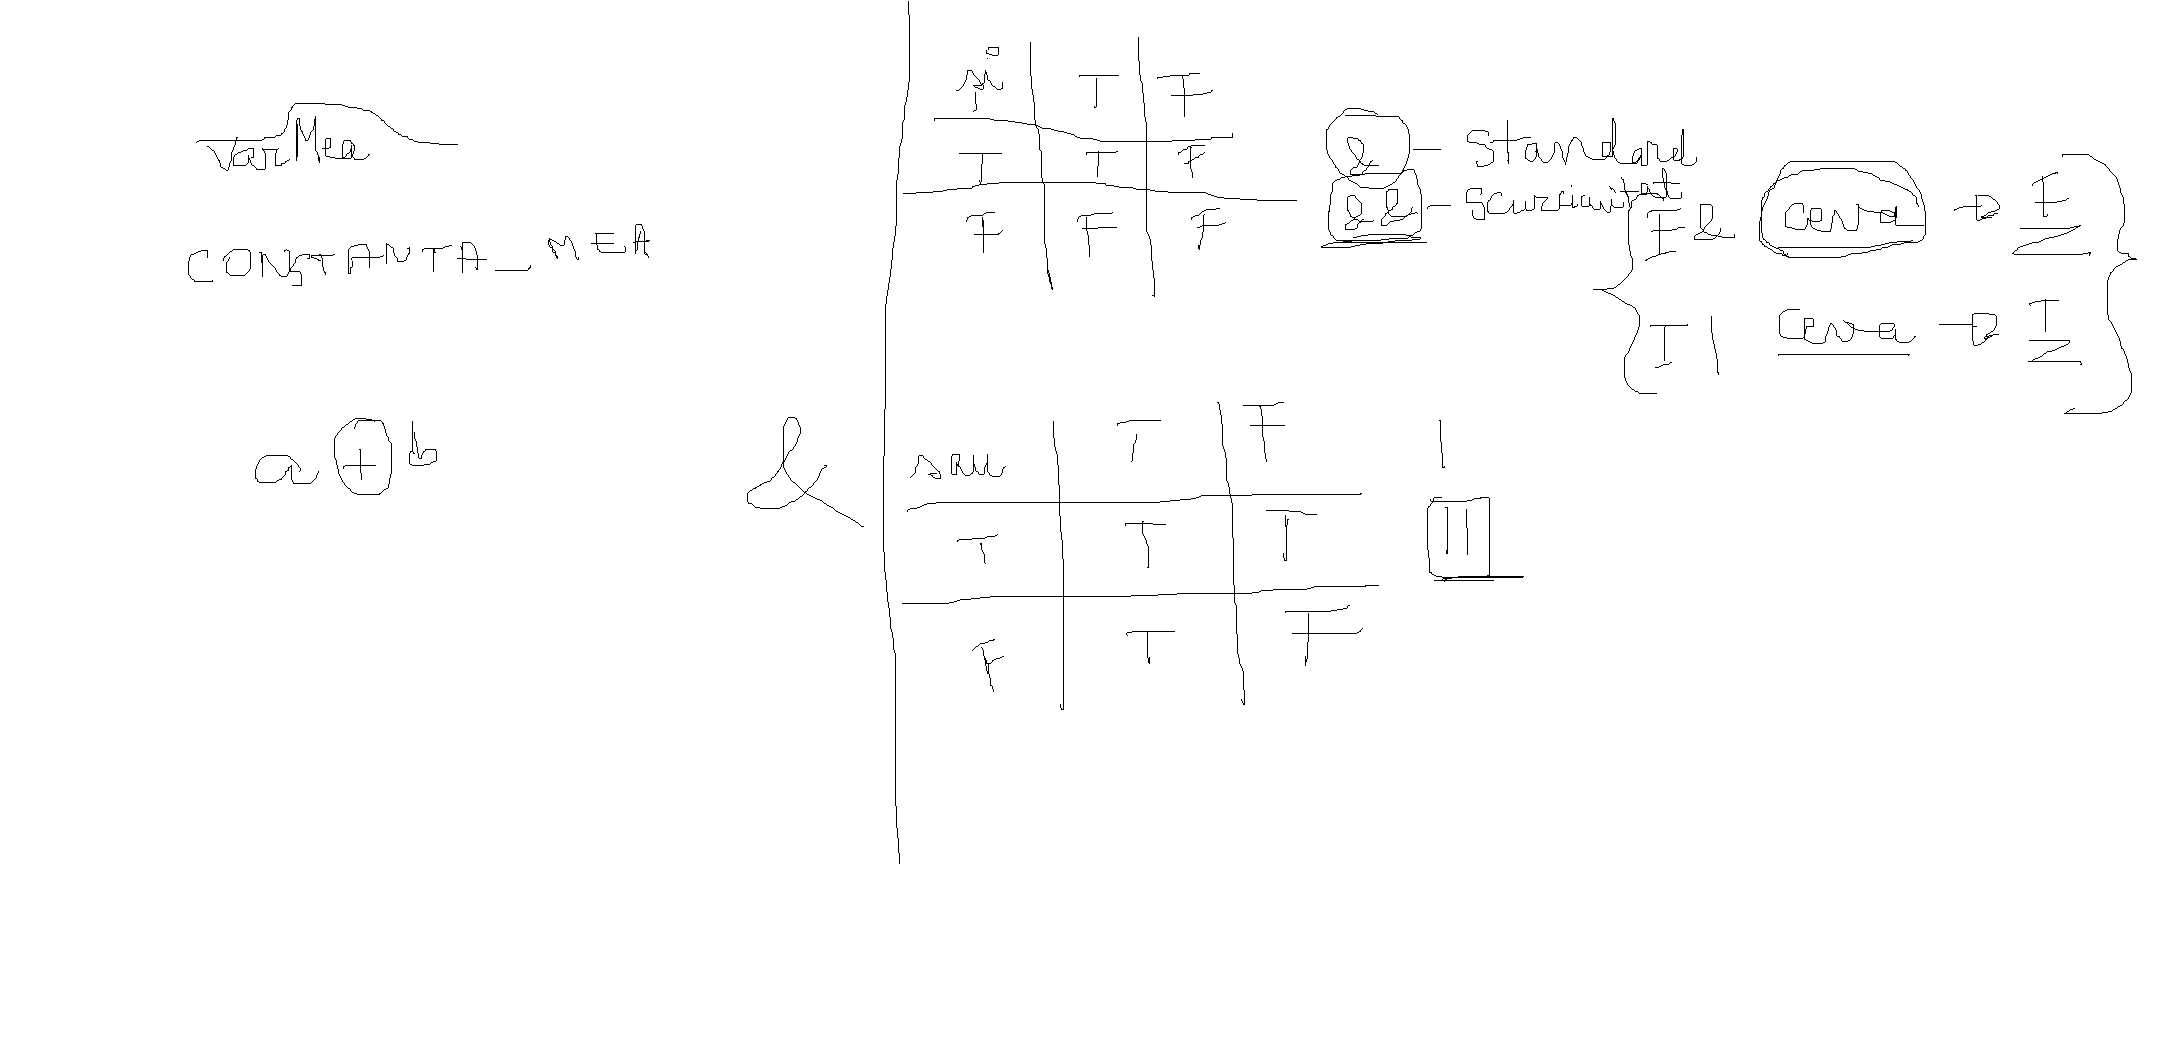 varMea
CONSTANTA_MEA
a + b
&
și T F
T T F
F F F
& - Standard
&& - scurcircuitat
F & ceva → F
T | ceva → T
sau T F
T T T
F T F
|
||